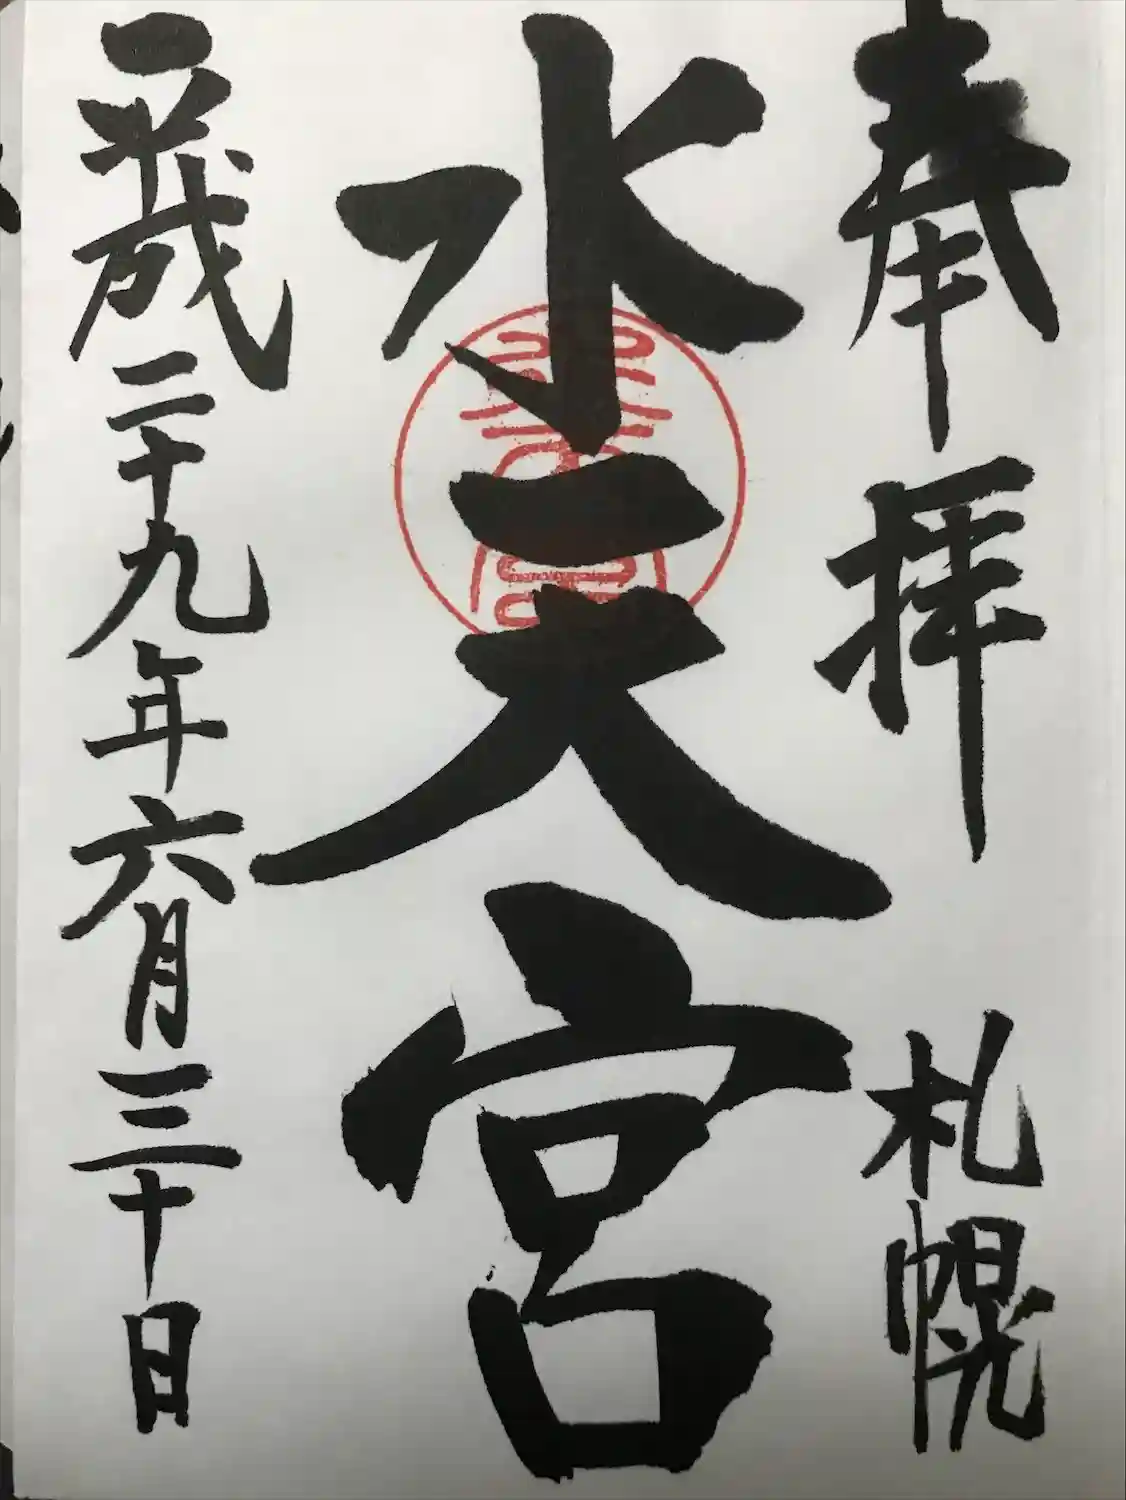 奉拝 札幌
水天宮
平成二十九年六月三十日